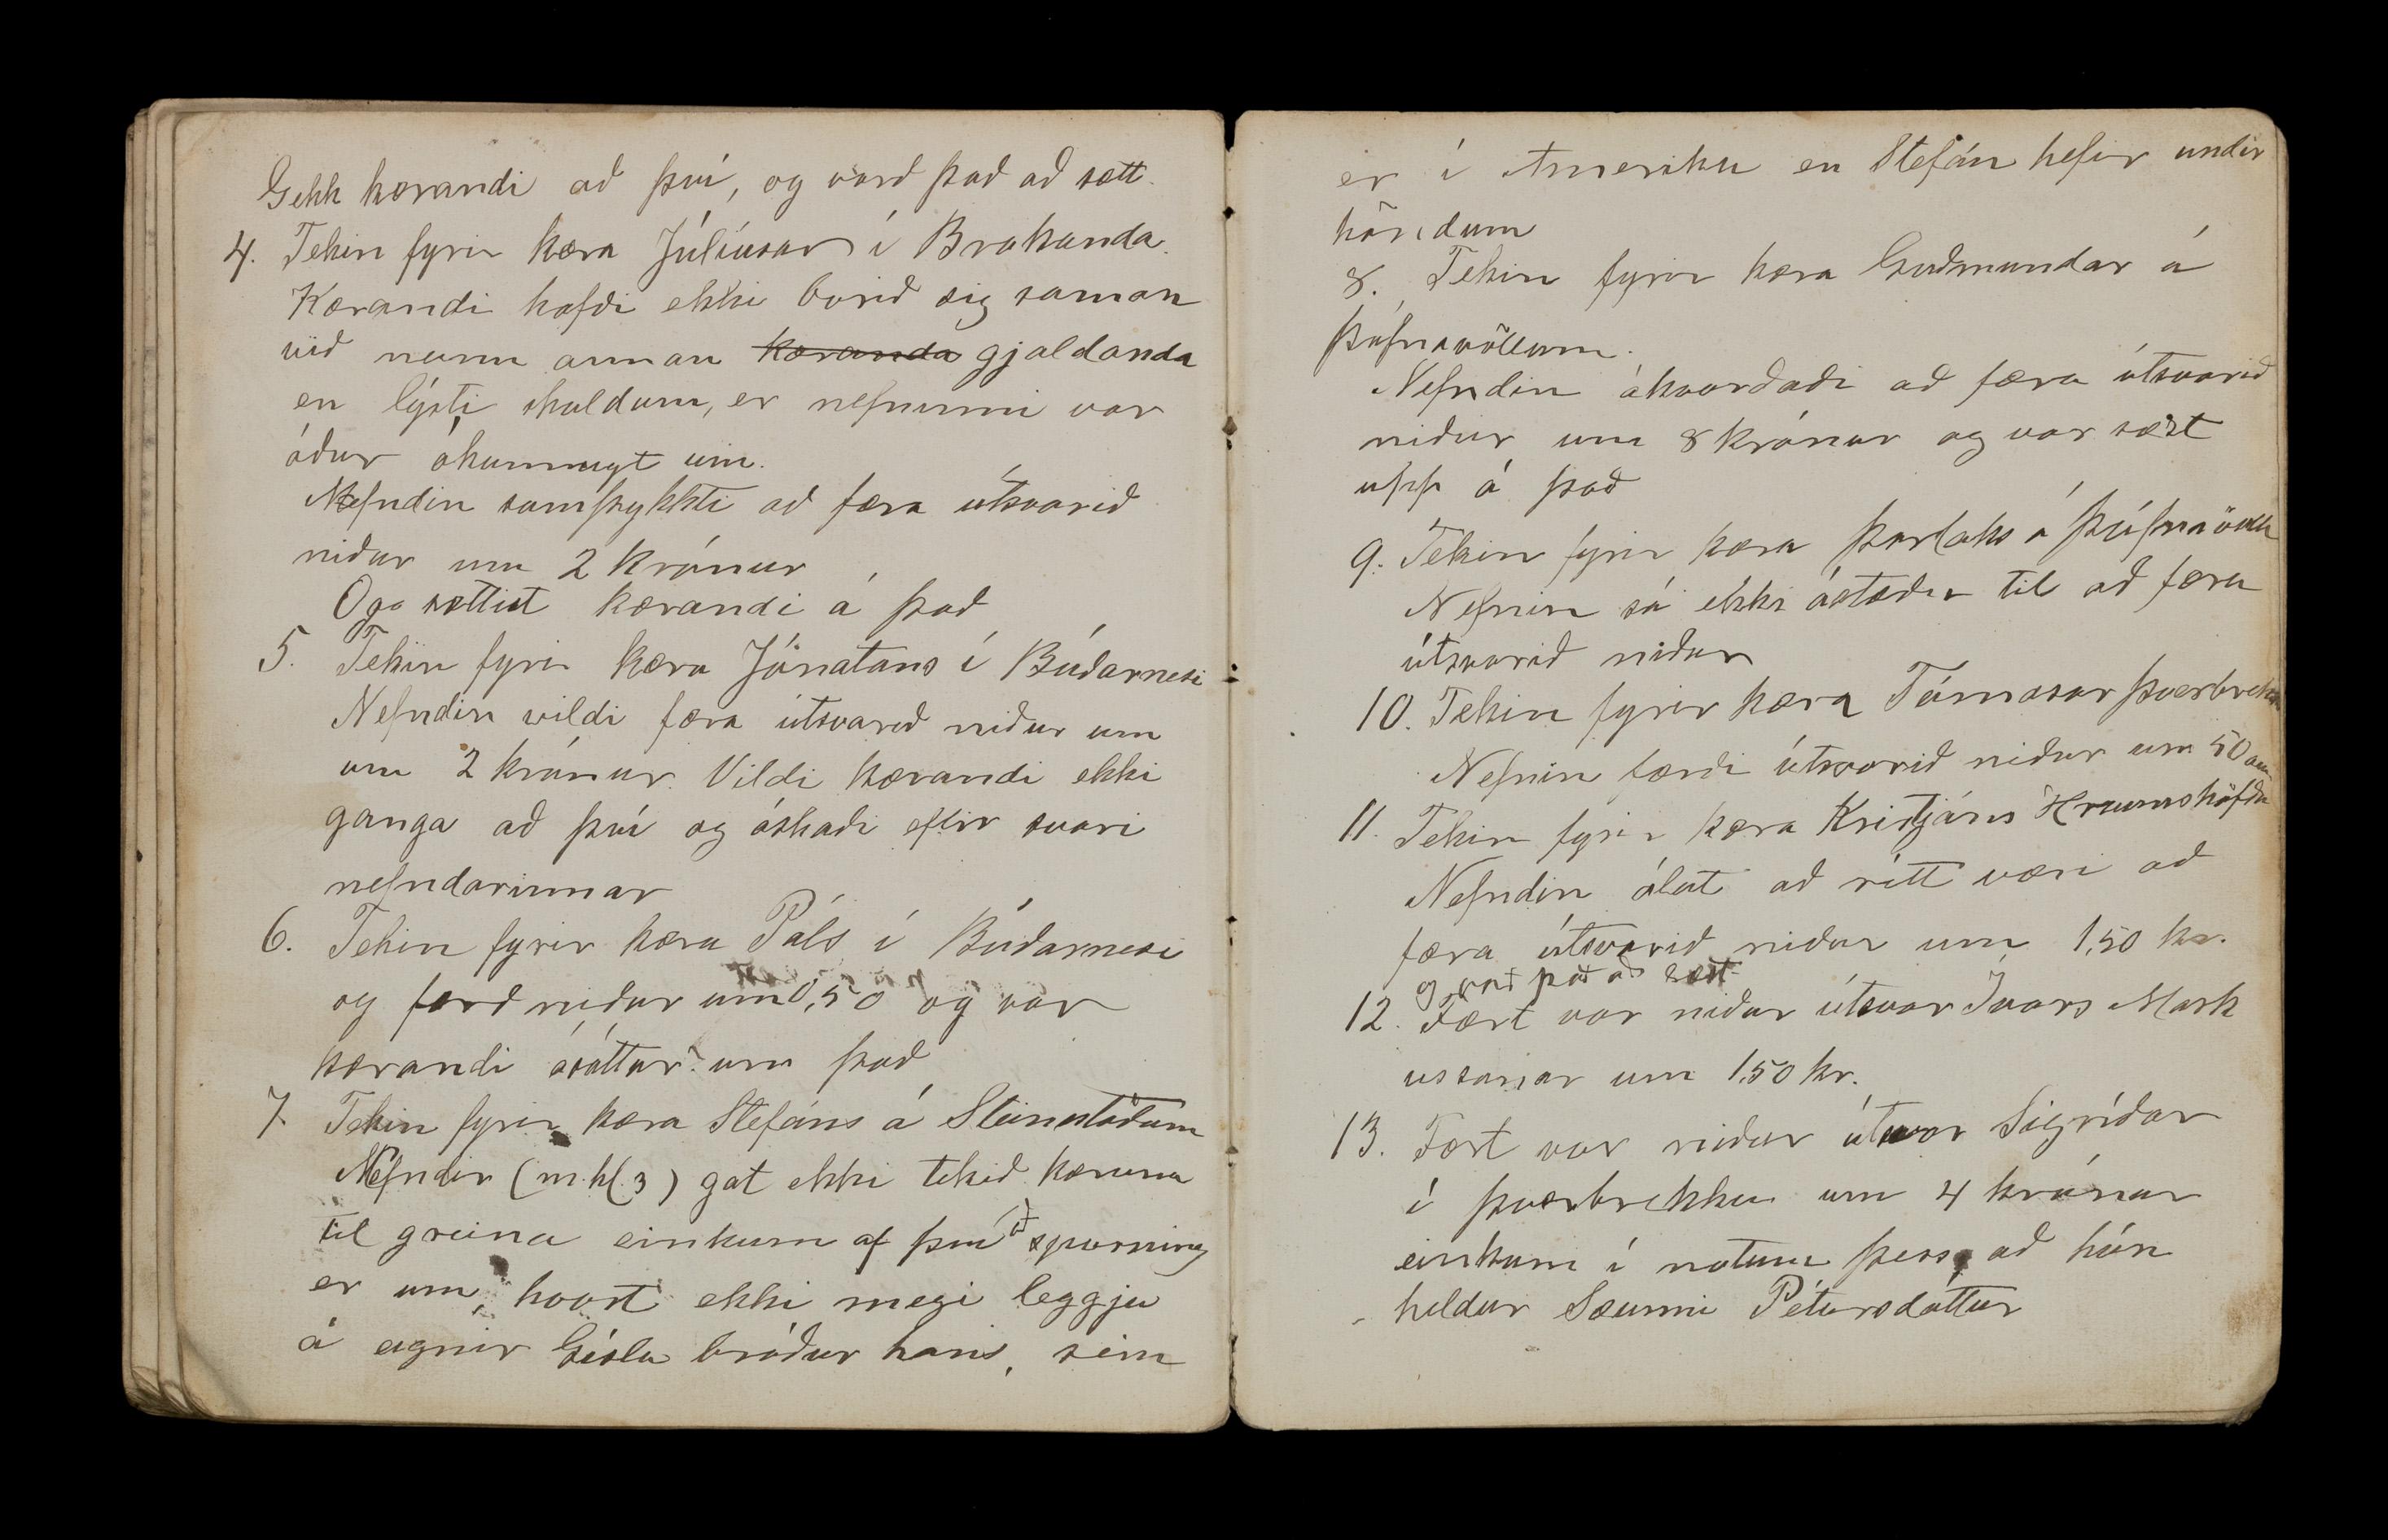 Gekk kærandi að því, og varð það að sætt.
4. Tekin fyrir kæra Júlíusar í Brakanda.
Kærandi hafði ekki borið sig saman
við neinn annan kæranda gjaldanda
en lýsti skuldum, er nefnunni var
áður ókunnugt um.
Nefndin samþykkti að færa útsvarið
niður um 2 krónur
Og sættist kærandi á það
5. Tekin fyrir kæra Jónatans í Búðarnesi
Nefndin vildi færa útsvarið niður um
um 2 krónur. Vildi kærandi ekki
ganga að því og óskaði eftir svari
nefndarinnar
6. Tekin fyrir kæra Páls í Búðarnesi
og færð niður um 0,50 og var
kærandi ásáttur um það
7. Tekin fyrir kæra Stefáns á Steinstöðum
Nefndin (m.hl. 3) gat ekki tekið kæruna
til greina einkum af því að spurning
er um, hvort ekki megi leggja
á eignir Gísla bróður hans, sem
er í Ameriku en Stefán hefir undir
höndum
8. Tekin fyrir kæra Guðmundar á
Þúfnavöllum.
Nefndin ákvarðaði að færa útsvarið
niður um 8 krónur og var sæst
upp á það
9. Tekin fyrir kæra Þorlaks á
Nefnin sá ekki ástæður til að færa
útsvarið niður
10. Tekin fyrir kæra Tómasar Þverbrekku
Nefnin færði útsvarið niður um 50 aur
11. Tekin fyrir kæra Kristjáns Hraunshöfða
Nefndin áleit að rétt væri að
færa útsvarið niður um 1,50 kr.
og varð það að sætt
12. Fært var niður útsvar Ívars Mark
ussonar um 1.50 kr.
13. Fært var niður útsvar Sigríðar
í Þverbrekku um 4 krónur
einkum í notum þess að hún
heldur Sæunni Pétursdóttur